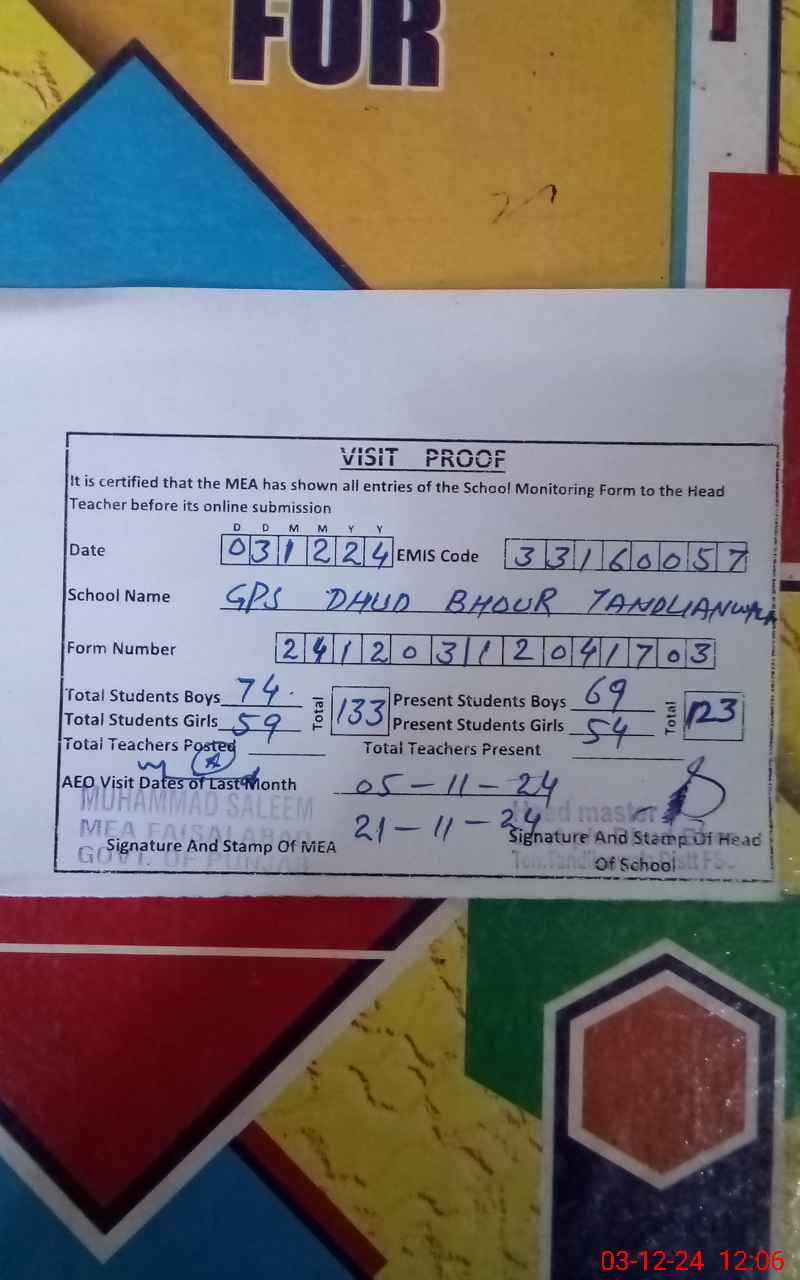 FOR
VISIT PROOF
It is certified that the MEA has shown all entries of the School Monitoring Form to the Head
Teacher before its online submission
D D M M Y Y
Date 031224 EMIS Code 33160057
School Name GPS DHUD BHOUR TANDLIANWALA
Form Number 24120312041703
Total Students Boys 74 Total 133 Present Students Boys 69 Total 123
Total Students Girls 59 Present Students Girls 54
Total Teachers Posted Total Teachers Present
AEO Visit Dates of Last Month 05-11-24
21-11-24
MUHAMMAD SALEEM
MEA FAISALABAD
GOVT. OF PUNJAB
Signature And Stamp Of MEA
Head master
Signature And Stamp Of Head
Of School
03-12-24 12:06